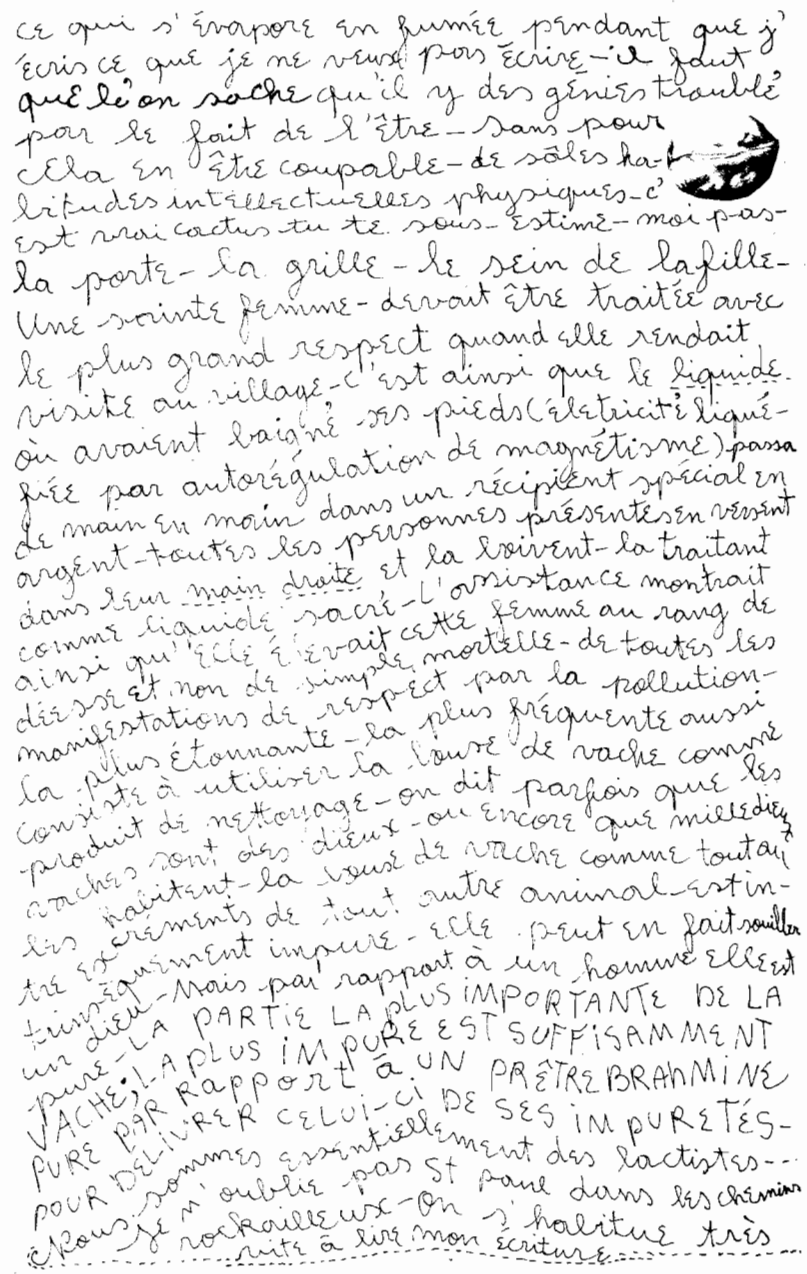 ce qui s'évapore en fumée pendant que j'
écris ce que je ne veux pas écrire - il faut
que l'on sache qu'il y des génies troublé
par le fait de l'être - sans pour
cela en être coupable - de sâles ha-
bitudes intellectuelles physiques - c'
est vrai cactus tu te sous-estime - moi pas -
la porte - la grille - le sein de la fille -
Une sainte femme - devait être traitée avec
le plus grand respect quand elle rendait
visite au village - c'est ainsi que le liquide
où avaient baigné ses pieds (életricité liqué-
fiée par autorégulation de magnétisme) passa
de main en main dans un récipient spécial en
argent - toutes les personnes présentes en versent
dans leur main droite et la boivent - la traitant
comme liquide sacré - l'assistance montrait
ainsi qu'elle élevait cette femme au rang de
déesse et non de simple mortelle - de toutes les
manifestations de respect par la pollution -
la plus étonnante - la plus fréquente aussi
consiste à utiliser la bouse de vache comme
produit de nettoyage - on dit parfois que les
vaches sont des dieux - ou encore que mille dieux
les habitent - la bouse de vache comme tout au
tre excréments de tout autre animal est in-
trinséquement impure - elle peut en fait souiller
un dieu - Mais par rapport à un homme elle est
pure - LA PARTIE LA PLUS IMPORTANTE DE LA
VACHE, LA PLUS IMPURE EST SUFFISAMMENT
PURE PAR RAPPORT À UN PRÊTRE BRAHMINE
POUR DÉLIVRER CELUI-CI DE SES IMPURETÉS -
Nous sommes essentiellement des lactistes ---
je n'oublie pas St paul dans les chemins
rockailleux - On s'habitue très
vite à lire mon écriture